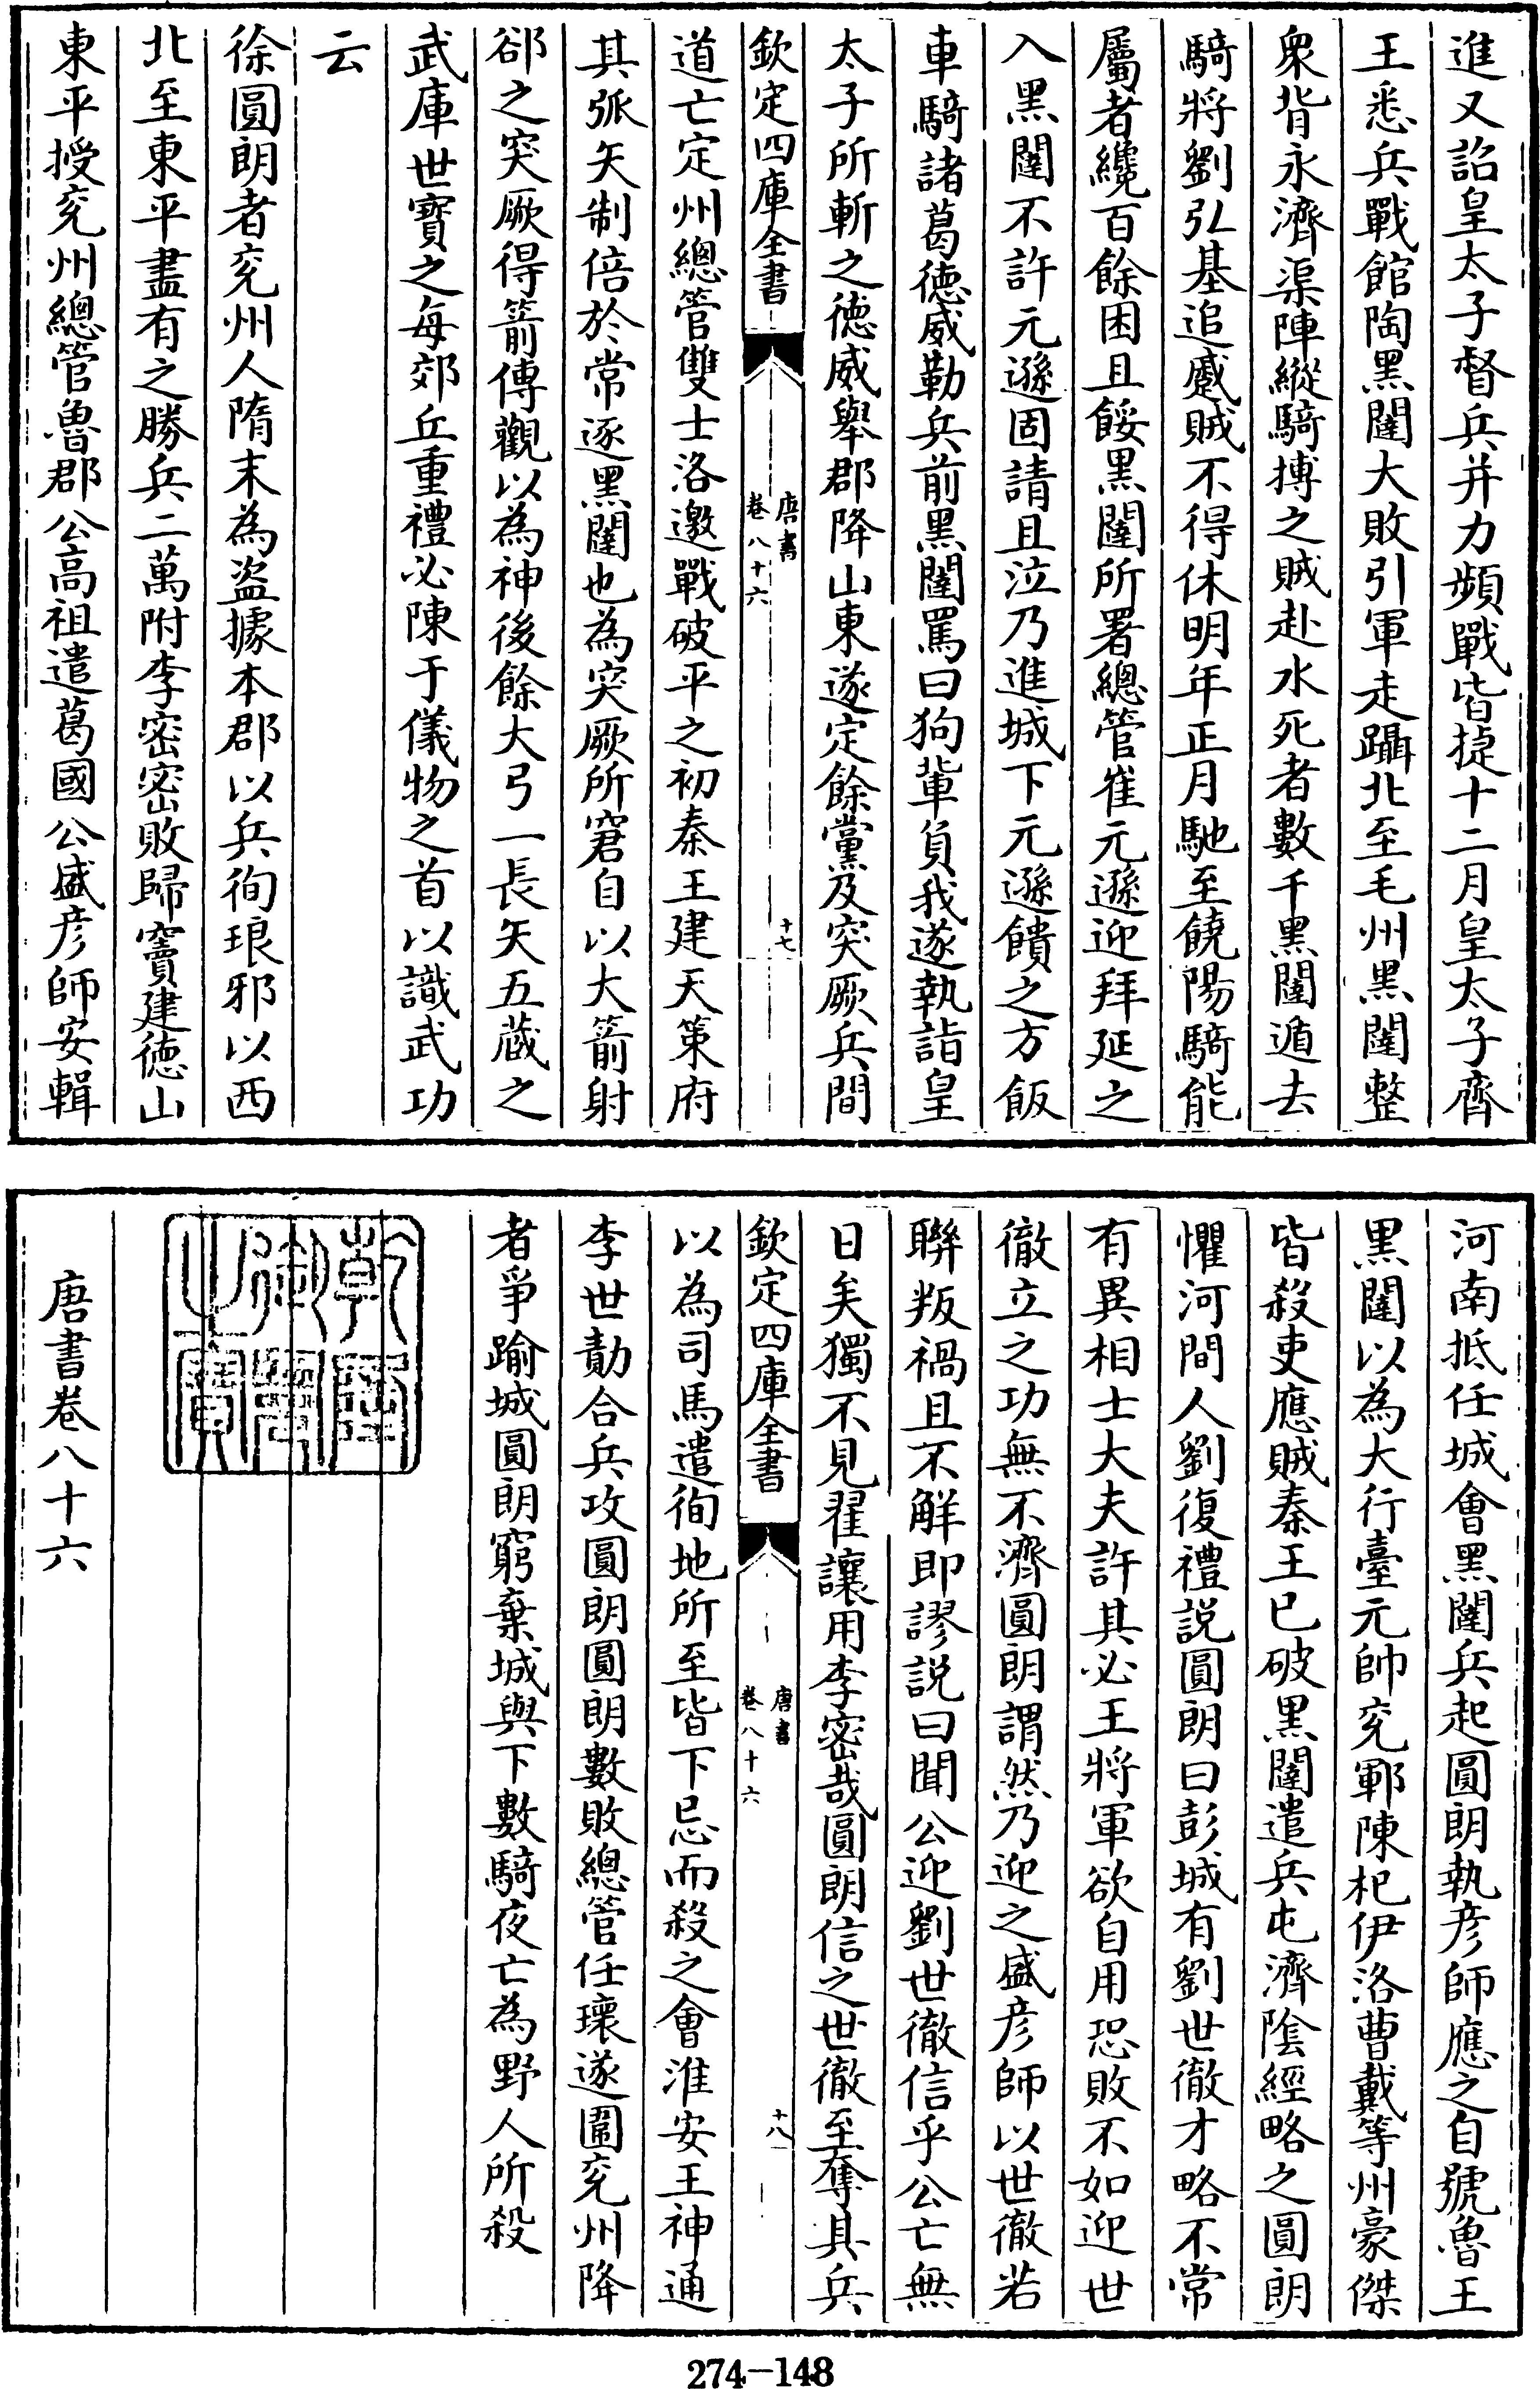 進又詔皇太子督兵并力頻戰皆捷十二月皇太子齊
王悉兵戰館陶黑闥大敗引軍走躡北至毛州黑闥整
衆背永濟渠陣縱騎搏之賊赴水死者數千黑闥遁去
騎將劉弘基追蹙賊不得休明年正月馳至饒陽騎能
屬者纔百餘困且餒黑闥所署總管崔元遜迎拜延之
入黑闥不許元遜固請且泣乃進城下元遜饋之方飯
車騎諸葛德威勒兵前黑闥罵曰狗輩負我遂執詣皇
太子所斬之德威舉郡降山東遂定餘黨及突厥兵間
欽定四庫全書
唐書
卷八十六
十七
道亡定州總管雙士洛邀戰破平之初秦王建天策府
其弧矢制倍於常逐黑闥也為突厥所窘自以大箭射
郤之突厥得箭傳觀以為神後餘大弓一長矢五藏之
武庫世寶之每郊丘重禮必陳于儀物之首以識武功
云
徐圓朗者兖州人隋末為盗據本郡以兵徇琅邪以西
北至東平盡有之勝兵二萬附李密密敗歸竇建德山
東平授兖州總管魯郡公高祖遣葛國公盛彦師安輯
河南抵任城會黑闥兵起圓朗執彦師應之自號魯王
黑闥以為大行臺元帥兖鄆陳杞伊洛曹戴等州豪傑
皆殺吏應賊秦王已破黑闥遣兵屯濟陰經略之圓朗
懼河間人劉復禮説圓朗曰彭城有劉世徹才略不常
有異相士大夫許其必王將軍欲自用恐敗不如迎世
徹立之功無不濟圓朗謂然乃迎之盛彦師以世徹若
聯叛禍且不解即謬説曰聞公迎劉世徹信乎公亡無
日矣獨不見翟讓用李密哉圓朗信之世徹至奪其兵
欽定四庫全書
唐書
卷八十六
十八
以為司馬遣徇地所至皆下忌而殺之會淮安王神通
李世勣合兵攻圓朗圓朗數敗總管任瓌遂圍兖州降
者爭踰城圓朗窮棄城與下數騎夜亡為野人所殺
乾隆
御覽
之寶
唐書卷八十六
274-148